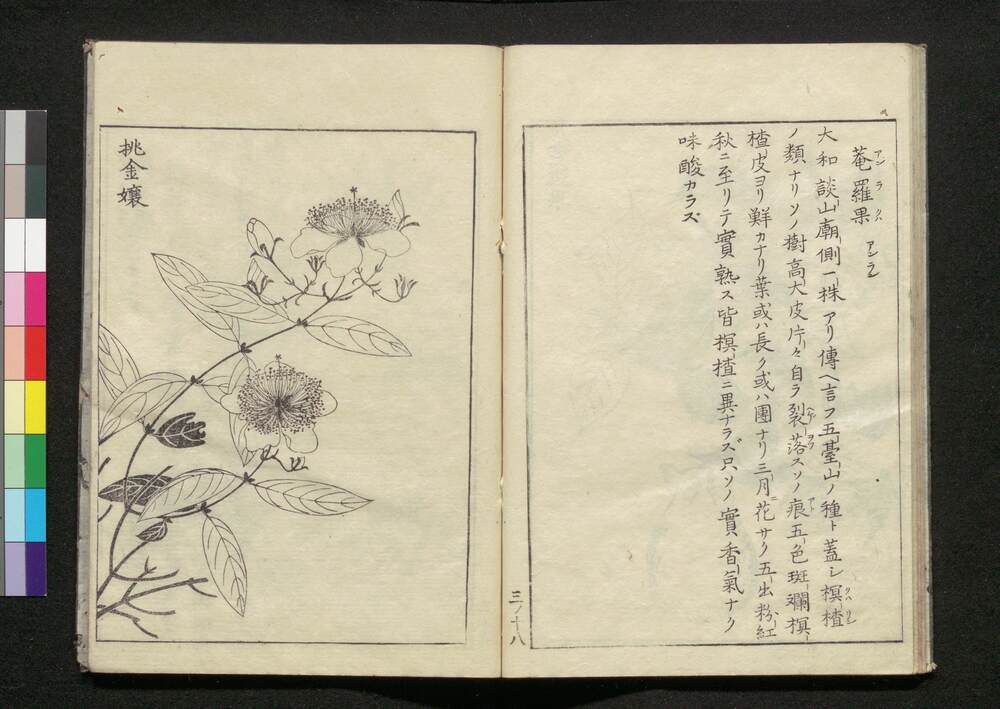 菴羅果 アンラ
アンラクハ
大和談山廟側一株アリ傳ヘ言フ五臺山ノ種ト蓋シ榠樝
クハリン
ノ類ナリソノ樹高大皮片々自ラ裂落スソノ痕五色斑斕榠
アト
樝皮ヨリ鮮カナリ葉或ハ長ク或ハ團ナリ三月花サク五出粉紅
秋ニ至リテ實熟ス皆榠樝ニ異ナラズ只ソノ實香氣ナク
味酸カラズ
三ノ十八
桃金孃